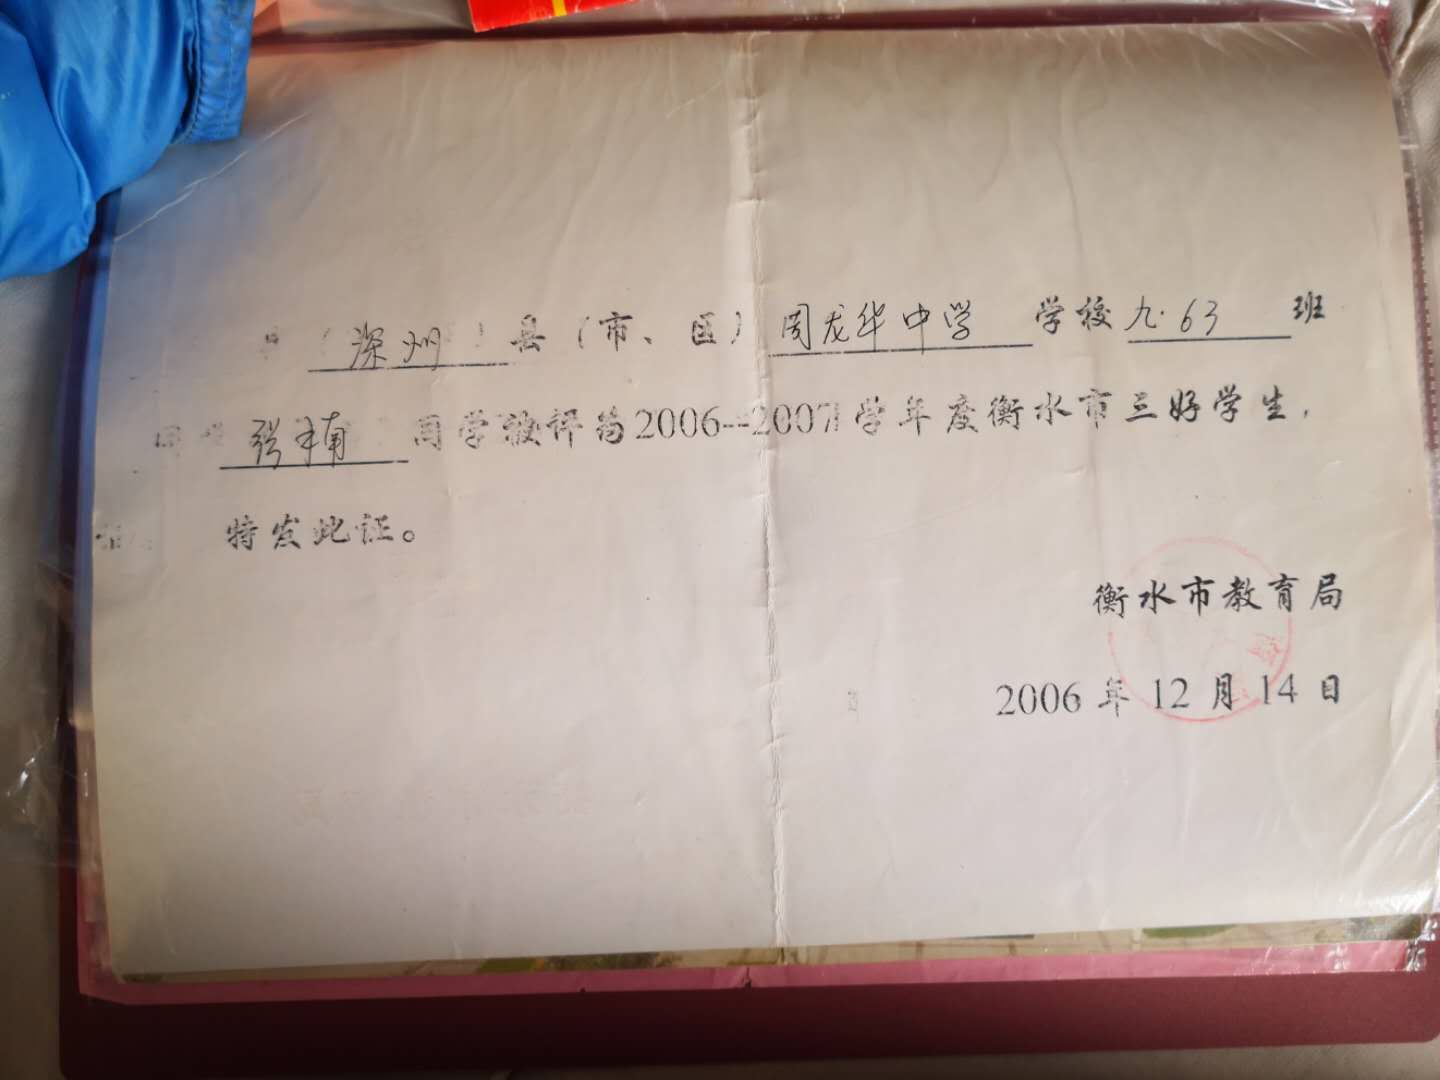 深州 县（市、区）周龙华中学 学校九.63 班
张楠 同学被评为2006--2007学年度衡水市三好学生，
特发此证。
衡水市教育局
2006 年 12 月 14 日